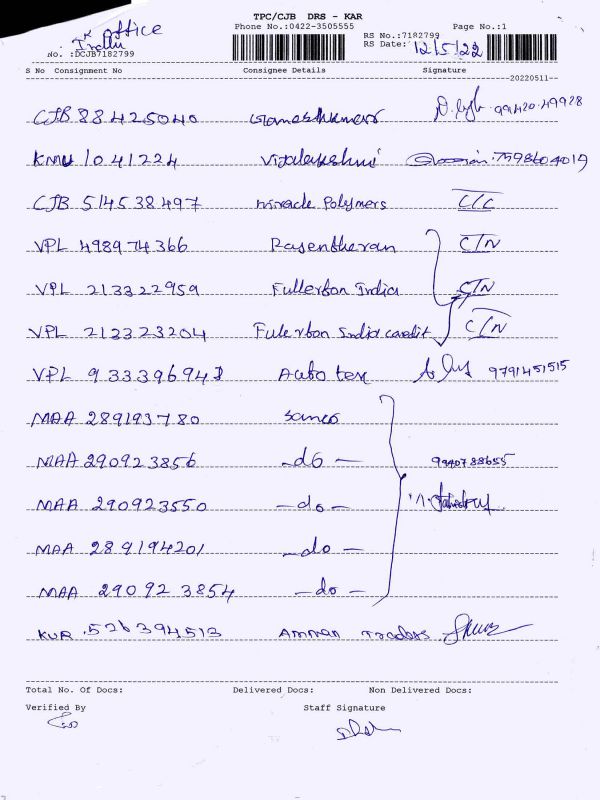 TPC/CJB DRS - KAR
Phone No.:0422-3505555 Page No.:1
Office
RS No.:7182799
No. :DCJB7182799 RS Date: 12/5/22
S No Consignment No Consignee Details Signature
20220511
CJB 88425040 Ganeshkumar 99420.49928
KMU 1041224 Vijalakshmi 7598604019
CJB 514538497 miracle Polymers C/C
VPL 498974366 Rasentheran C/N
VPL 213322959 Fullerton India C/N
VPL 213323204 Fulerton India credit C/N
VPL 933396941 Auto tex 9791451515
MAA 289193780 Sanco
MAA 290923856 -do- 9940788655
MAA 290923550 -do-
MAA 289194201 -do-
MAA 290923854 -do-
KUR 526394513 Amman Traders
Total No. Of Docs: Delivered Docs: Non Delivered Docs:
Verified By Staff Signature